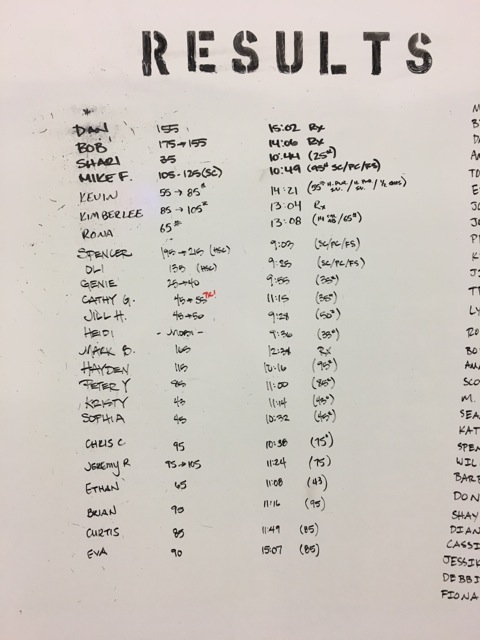 RESULTS
DAN 155 15:02 Rx
BOB 175→155 14:06 Rx
SHARI 35 10:44 (25#)
MIKE F. 105-125(SC) 10:49 (95# SC/PC/FS)
KEVIN 55→85# 14:21
KIMBERLEE 85→105# 13:04 Rx
RONA 65# 13:08
SPENCER 195→215 (HSC) 9:03 (SC/PC/FS)
OLI 135 (HSC) 9:25 (SC/PC/FS)
GENIE 25→40 9:55 (35#)
CATHY G. 45→55 PR! 11:15 (35#)
JILL H. 45→50 9:28 (50#)
HEIDI - MOBI - 9:36 (35#)
MARK B. 165 12:38 Rx
HAYDEN 115 10:16 (95#)
PETER Y 85 11:00 (85#)
KRISTY 43 11:14 (43#)
SOPHIA 45 10:32 (45#)
CHRIS C 95 10:38 (75#)
JEREMY R 95→105 11:24 (75)
ETHAN 65 11:08 (43)
BRIAN 90 11:16 (95)
CURTIS 85 11:49 (85)
EVA 90 15:07 (85)
PI
LY
RO
BO
AMA
SCO
M.
SEA
KAT
SPEN
WIL
BARB
DON
SHAY
DIAN
CASSI
JESSIK
DEBBI
FIONA